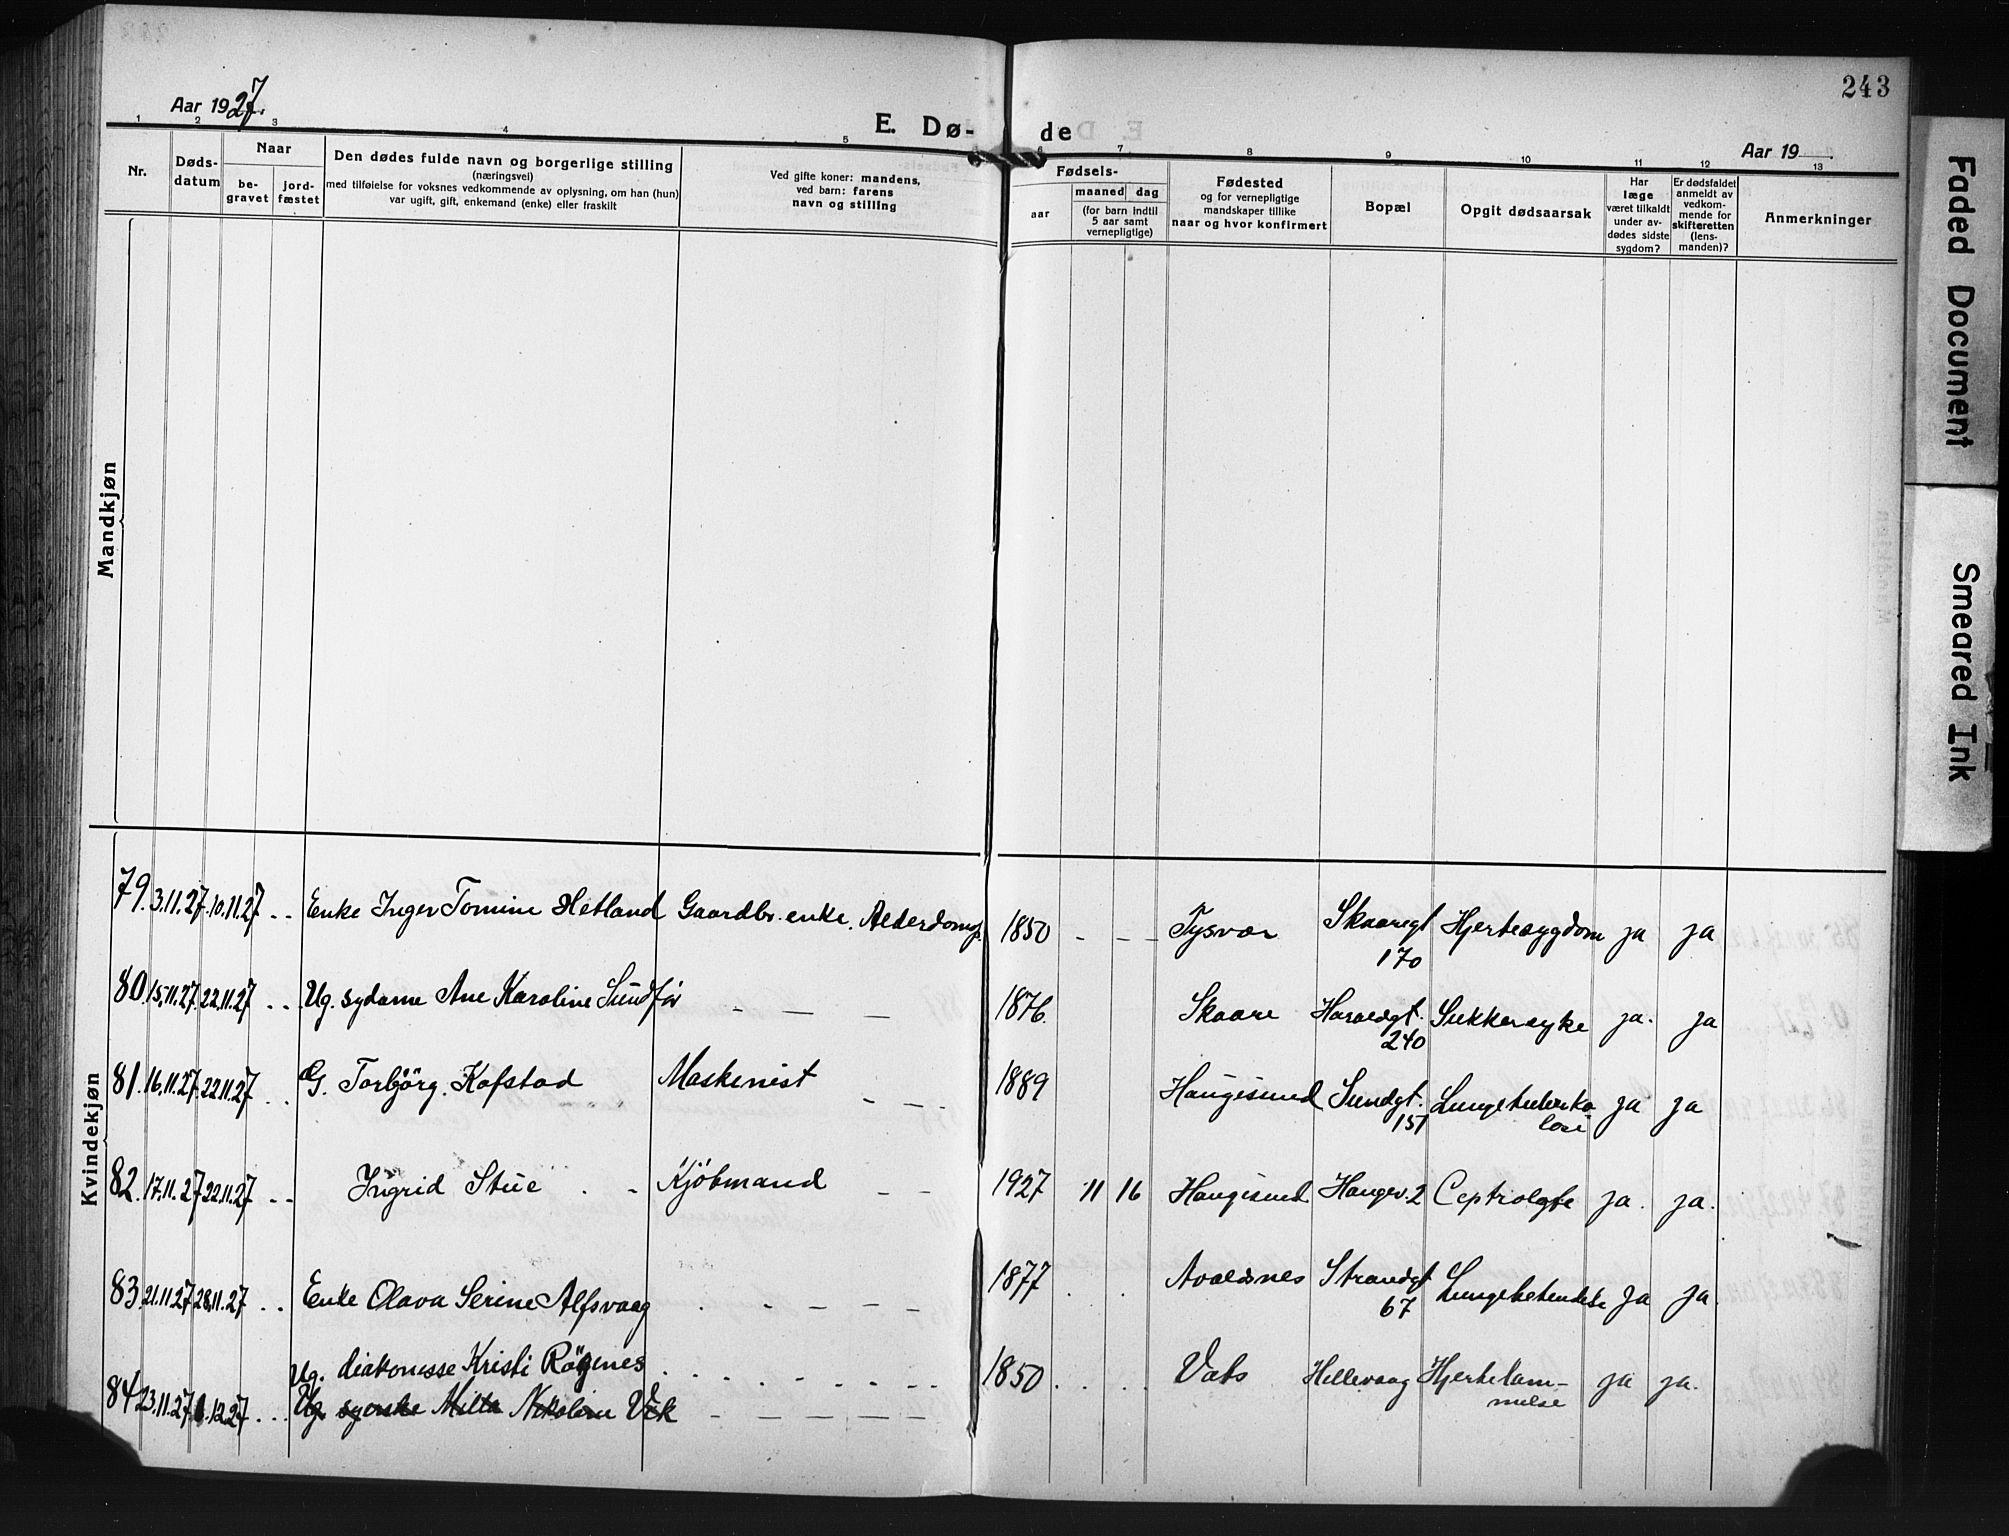 243
Aar 1927.
E. Dø-
de
Aar 19
1 2 3 4 5 6 7 8 9 10 11 12 13
Nr.
Døds-
datum
Naar
be-
gravet
jord-
fæstet
Den dødes fulde navn og borgerlige stilling
(næringsvei)
med tilføielse for voksnes vedkommende av oplysning, om han (hun)
var ugift, gift, enkemand (enke) eller fraskilt
Ved gifte koner: mandens,
ved barn: farens
navn og stilling
Fødsels-
aar
maaned dag
(for barn indtil
5 aar samt
vernepligtige)
Fødested
og for vernepligtige
mandskaper tillike
naar og hvor konfirmert
Bopæl
Opgit dødsaarsak
Har
læge
været tilkaldt
under av-
dødes sidste
sygdom?
Er dødsfaldet
anmeldt av
vedkom-
mende for
skifteretten
(lens-
manden)?
Anmerkninger
Mandkjøn
Kvindekjøn
79. 3.11.27. 10.11.27 - - Enke Inger Tomine Hetland Gaardbr. enke. Alderdomsp. 1850 - - - Tysvær Skaaregt 170 Hjertesygdom ja ja
80. 15.11.27. 22.11.27 - - Ug. sydame Ane Karoline Sundfør - - - 1876. Skaare Haraldgt. 240 Sukkersyke ja. ja
81. 16.11.27. 22.11.27 - - G. Torbjörg. Kofstad Maskinist - - - 1889 Haugesund Sundgt. 151 Lungetuberku
lose ja ja
82. 17.11.27 22.11.27 - - Ingrid Stue - - Kjöbmand - - 1927 11 16 Haugesund Haugev. 2 ja. ja.
83. 21.11.27 28.11.27 - - Enke Olava Serine Alfsvaag - - - - - 1877 Avaldsnes Strandgt 67 Lungebetendelse ja ja.
Ug. diakonisse Kristi Röğenes
84. 23.11.27. 1.12.27 - - Ug. Milla Nikoline Vik - - - - 1850 Vats Hellevaag Hjertelam-
melse ja ja.
Faded Document
Smeared Ink